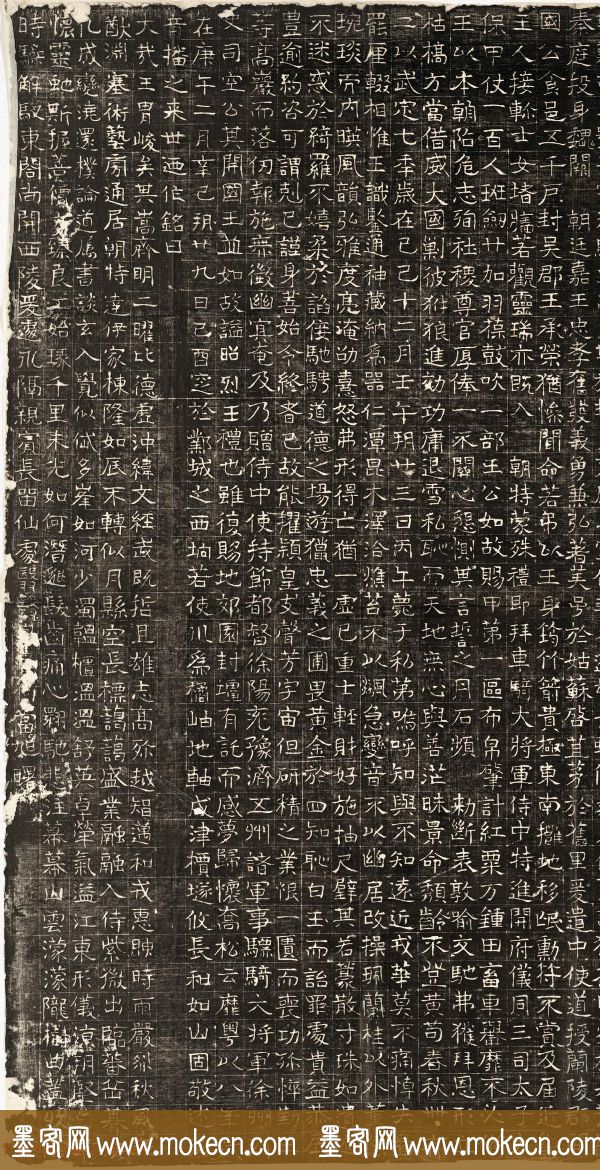 秦庭投身魏闕 朝廷嘉王忠孝舊發義勇兼弘著美号於姑蘇啓苴茅於舊里爰遣中使道授蘭陵郡
國公食邑五千户封吴郡王承榮猶慄聞命若弔以王身筠竹箭貴極東南攤地移岷勳苻不賞及届近
主人接軫士女堵牆若觀靈瑞亦既入 朝特蒙殊禮即拜車騎大將軍侍中特進開府儀同三司太子
保甲仗一百人班劒廿加羽葆鼓吹一部王公如故賜甲第一區布帛肇計紅粟万鍾田畜車轝靡不
王以本朝陷危志殉社稷尊官厚俸一不關心懇惻其言誓之丹石頻 勑斷表敦喻交馳弗獲拜恩
枯槁方當借威大國剿彼犲狼進効功庸退雪私恥而天地無心與善茫昧景命頹齡不登黄苟春秋卌
二以武定七秊歲在己巳十二月壬午朔廿三日丙午薨于私第嗚呼知與不知遠近戎華莫不痛悼
罷厘輟相惟王識鑒通神藏納爲器仁潭昆木澤洽燋苔不以飄急變音不以幽居改操珮蘭桂以外
琬琰而内暎風韻弘雅度亮淹劭憙怒弗形得亡猶一虚己重士輕財好施抽尺璧其若蒃散寸珠如
不迷惑於綺羅不嬉柔於諂佞馳騁道德之場遊獵忠義之圃畏黄金於四知恥白玉而詒罪處貴益恭
豊逾約咨可謂剋己謹身善始令終者已故能擢穎皇支聲芳宇宙但研精之業限一匱而喪功殄怦勤
等高巖而落仞報施無徵幽冝奄及乃贈侍中使持節都督徐陽兖豫濟五州諸軍事驃騎大將軍徐州
又司空公其開國王並如故謚昭烈王禮也雖復賜地郊園封壃有託而感夢歸懷喬松云靡粤以八年
在庚午二月辛巳朔廿九日己酉窆於鄴城之西埛若使川爲橋岫地軸成津櫝墜攸長和如山固敬
音播之来世迺作銘曰
大哉王胄峻矣其嵩齊明二曜比德虚沖緯文經武既哲且雄志高忩越智邁和戎惠暎時雨嚴㣲秋風
猷淵塞術藝旁通居朝特達伊家棟隆如底不轉似月縣空長標謁謁盛業融融入侍紫微出臨蕃岳
化成變澆還樸論道屬書談玄入覺似忒多峯如河少濁韞櫃溫溫舒英卓犖氣溢江東形儀凉朔
懷靈虵斯握善價良工始琢千里未光如何潛遯鬒齒痛心翺馳悲汪幕暮山雲濛濛隴樹曲蓋
時驂解馭東閤尚開西陵爰處永隔親賓長留仙處賢
墨客网 www.mokecn.com 墨客网 www.mokecn.com